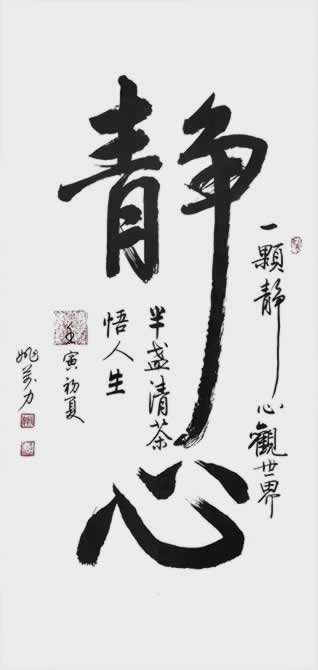 静心
一顆静心觀世界
半盏清茶
悟人生
壬寅初夏
姚力